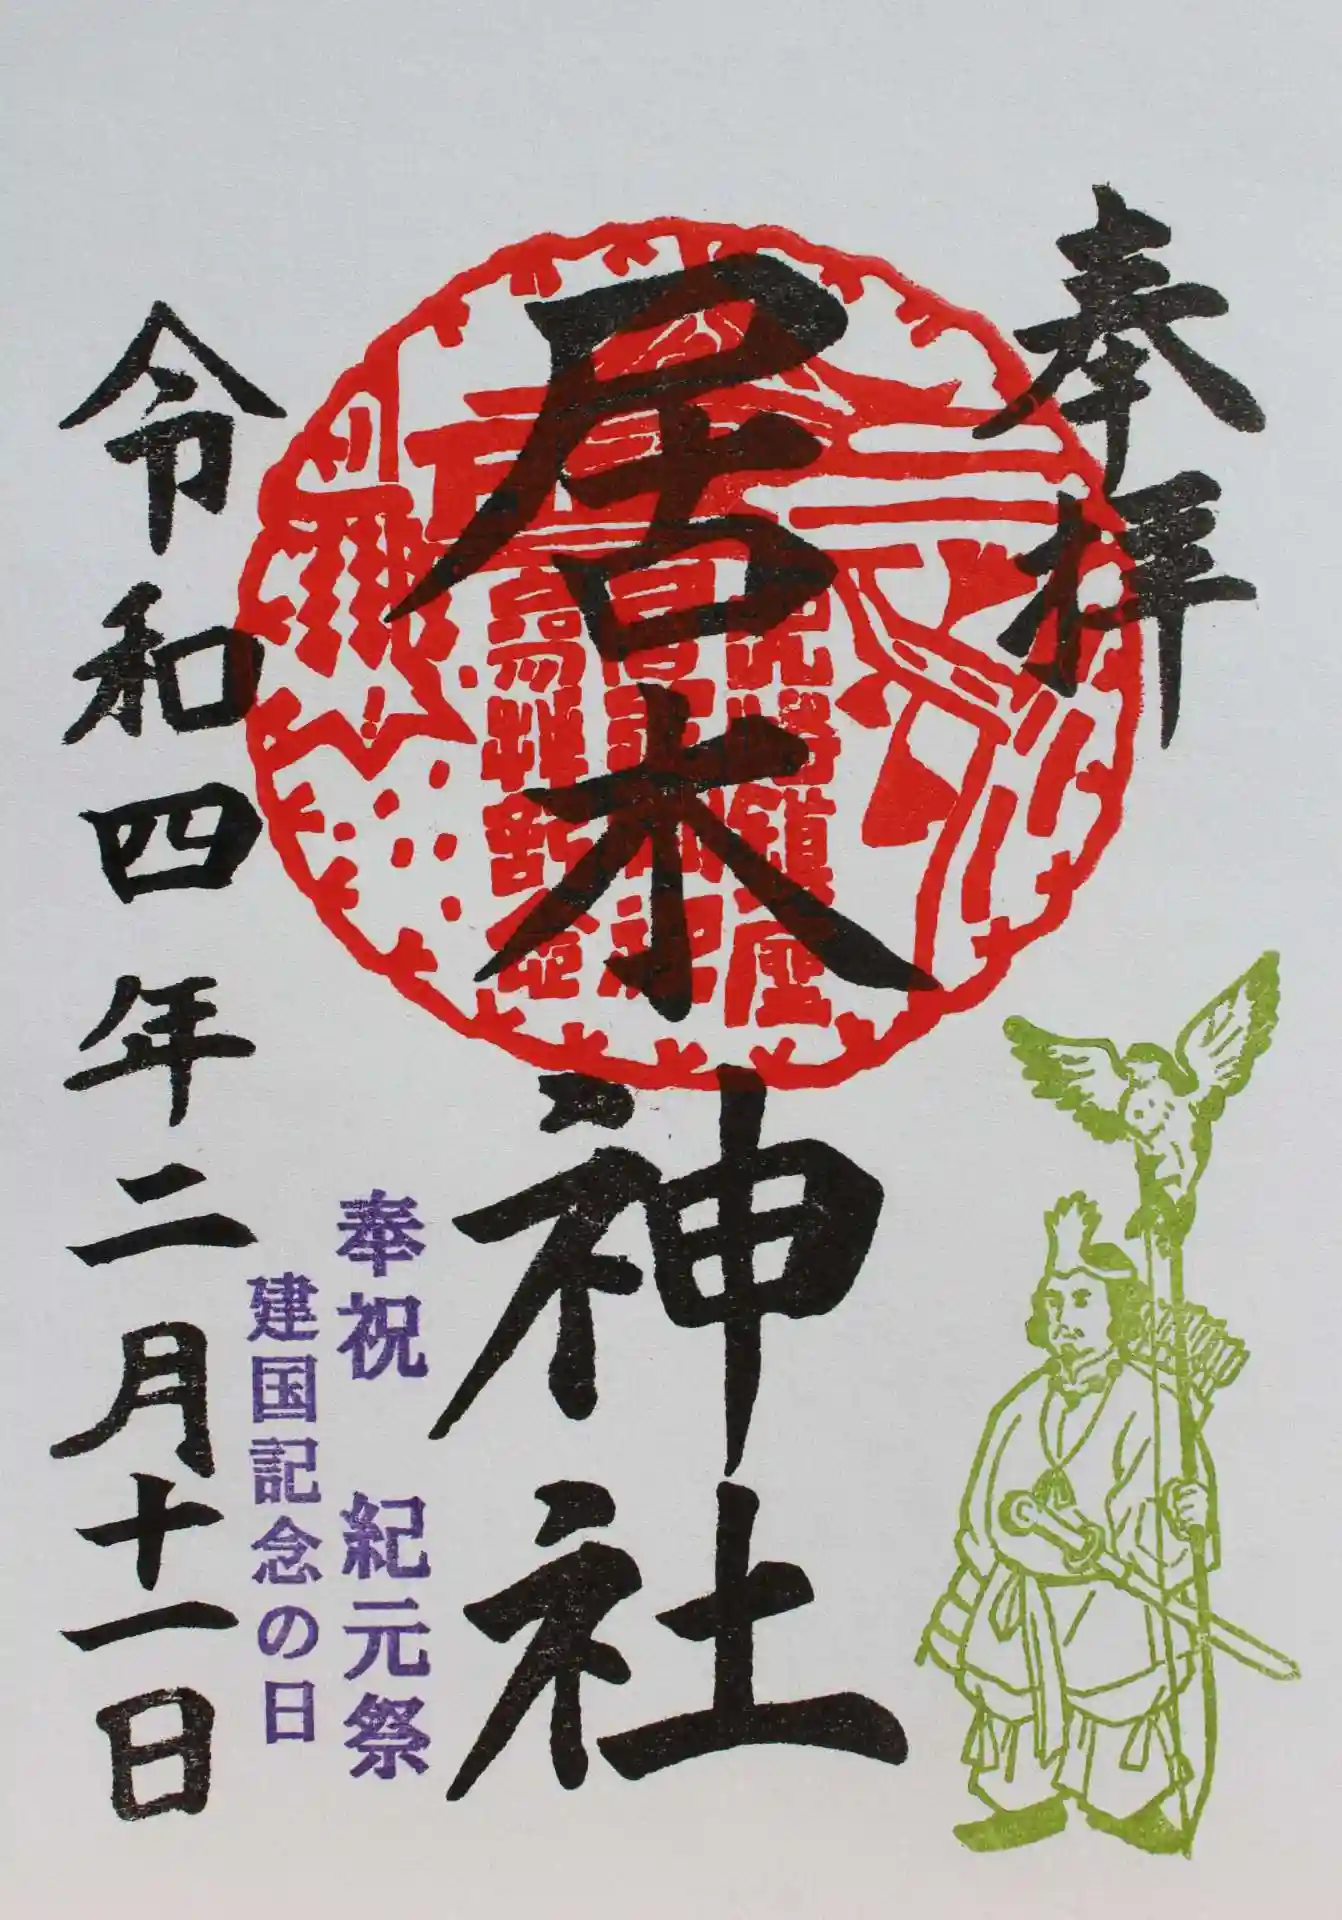 奉拝
居木神社
奉祝 紀元祭
建国記念の日
令和四年二月十一日